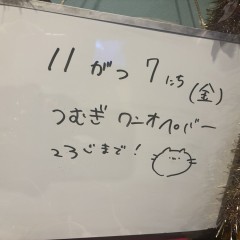 11がつ7にち(金)
つむぎ ワンオペバー
23じまで!